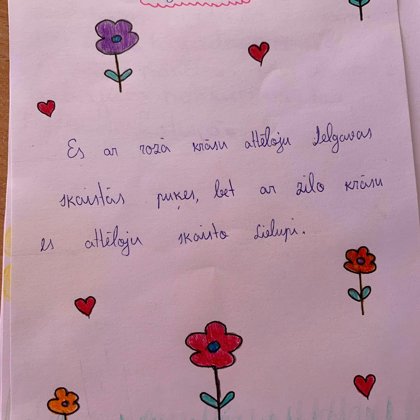 Es ar rozā krāsu attēloju Jelgavas
skaistās puķes, bet ar zilo krāsu
es attēloju skaisto Lielupi.